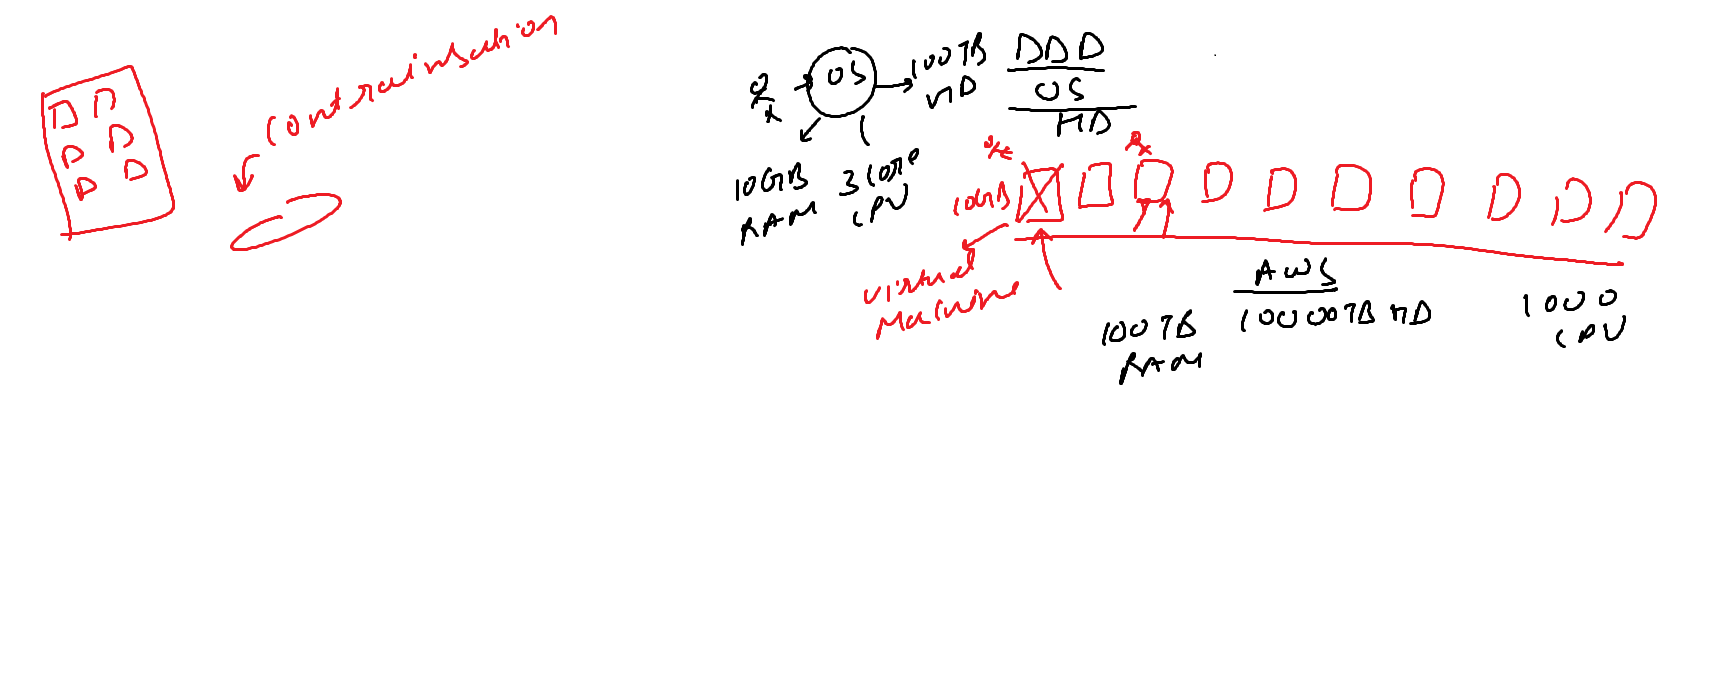 Contrainsation
OS
100TB
HD
OS
HD
10GB
RAM
3 core
CPU
10GB
virtual
Machine
AWS
100TB
RAM
10000TB HD
1000
CPU